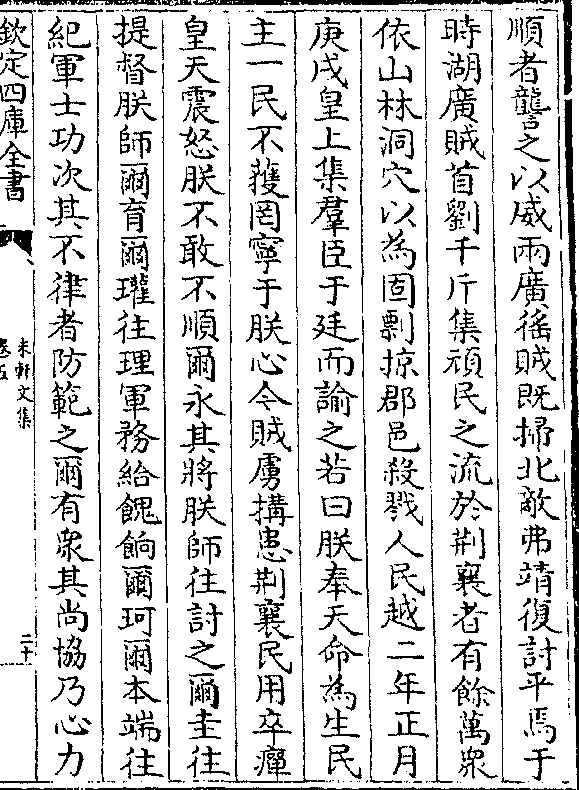 順者讋之以威兩廣徭賊既掃北敵弗靖復討平焉于
時湖廣賊酋劉千斤集頑民之流於荆襄者有餘萬衆
依山林洞穴以為固剽掠郡邑殺戮人民越二年正月
庚戌皇上集羣臣于廷而諭之若曰朕奉天命為生民
主一民不獲罔寧于朕心今賊虜搆患荆襄民用卒癉
皇天震怒朕不敢不順爾永其將朕師往討之爾圭往
提督朕師爾育爾瓘往理軍務給餽餉爾珂爾本端往
紀軍士功次其不律者防範之爾有衆其尚協乃心力
欽定四庫全書
未軒文集
卷五
二十